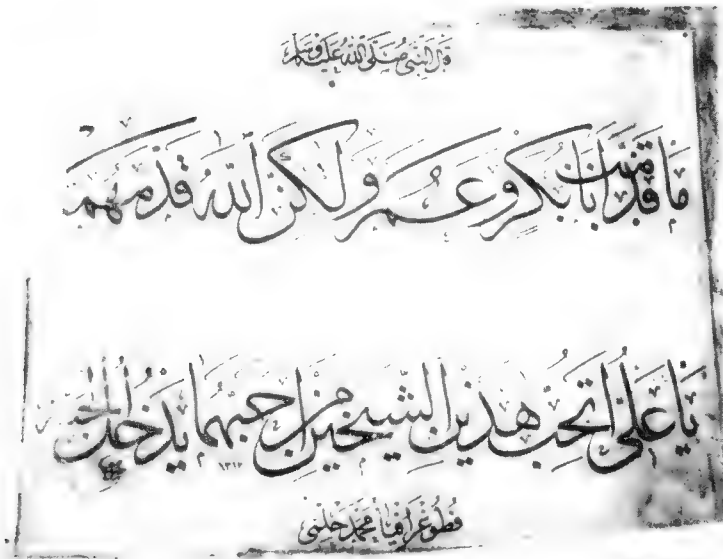 قال النبي صلى الله عليه وسلم
ما قدمت أبا بكر وعمر ولكن الله قدمهما
يا علي أتحب هذين الشيخين من أحبهما يدخل الجنة
١٣١٢
فطوغرافيا محمد حلمي